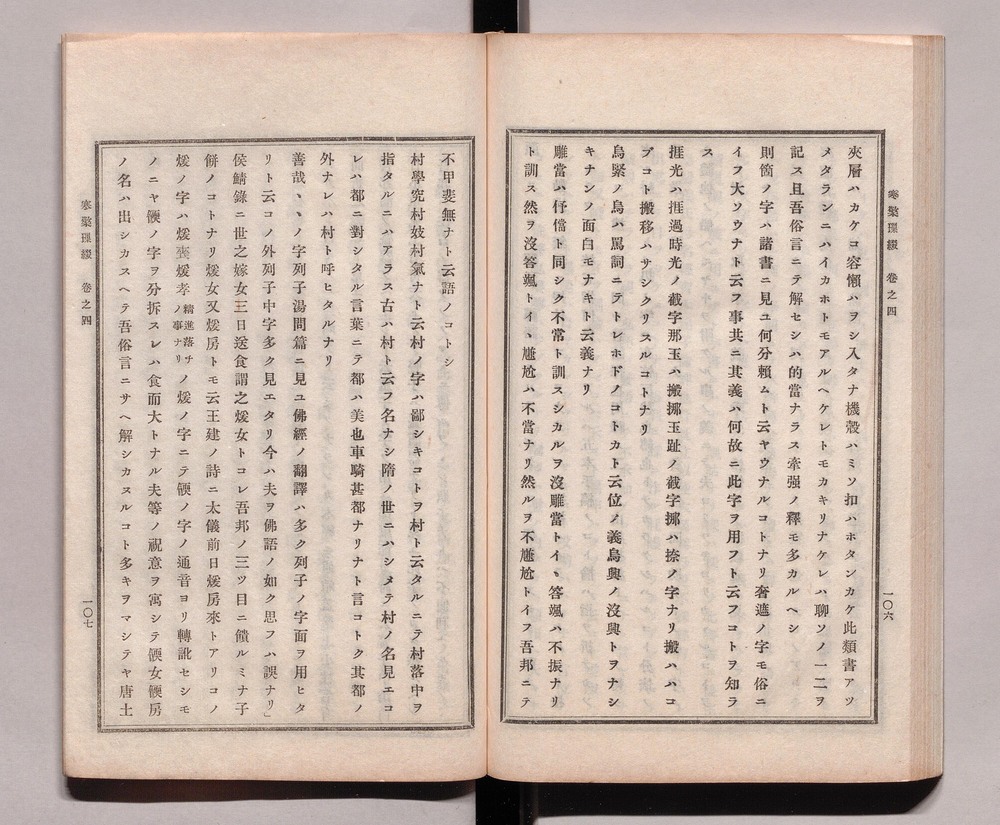 寒檠璅綴　卷之四
一〇六
夾層ハカケコ容懶ハヲシ入タナ機殼ハミソ扣ハホタンカケ此類書アツ
メタランニハイカホトモアルヘケレトモカキリナケレハ聊ソノ一二ヲ
記ス且吾俗言ニテ解セシハ的當ナラス牽强ノ釋モ多カルヘシ
則箇ノ字ハ諸書ニ見ユ何分賴ムト云ヤウナルコトナリ奢遮ノ字モ俗ニ
イフ大ソウナト云フ事共ニ其義ハ何故ニ此字ヲ用フト云フコトヲ知ラ
ス
捱光ハ捱過時光ノ截字那玉ハ搬挪玉趾ノ截字挪ハ捺ノ字ナリ搬ハハコ
ブコト搬移ハサシクリスルコトナリ
烏緊ノ烏ハ罵詞ニテトレホドノコトカト云位ノ義烏興ノ沒興トヲナシ
キナシノ面白モナキト云義ナリ
雕當ハ伃儅ト同シク不常ト訓スシカルヲ沒雕當トイヽ答颯ハ不振ナリ
ト訓ス然ヲ沒答颯トイヽ尷尬ハ不當ナリ然ルヲ不尷尬トイフ吾邦ニテ
不甲斐無ナト云語ノコトシ
村學究村妓村氣ナト云村ノ字ハ鄙シキコトヲ村ト云タルニテ村落中ヲ
指タルニハアラス古ハ村ト云フ名ナシ隋ノ世ニハシメテ村ノ名見エコ
レハ都ニ對シタル言葉ニテ都ハ美也車騎甚都ナリナト言コトク其都ノ
外ナレハ村ト呼ヒタルナリ
善哉ヽヽノ字列子湯問篇ニ見ユ佛經ノ翻譯ハ多ク列子ノ字面ヲ用ヒタ
リト云コノ外列子中字多ク見エタリ今ハ夫ヲ佛語ノ如ク思フハ誤ナリ」
侯鯖錄ニ世之嫁女三日送食謂之煖女トコレ吾邦ノ三ツ目ニ饋ルミナ子
餠ノコトナリ煖女又煖房トモ云王建ノ詩ニ太儀前日煖房來トアリコノ
煖ノ字ハ煖喪煖孝精進落チノ事ナリノ煖ノ字ニテ餪ノ字ノ通音ヨリ轉訛セシモ
ノニヤ餪ノ字ヲ分拆スレハ食而大トナル夫等ノ祝意ヲ寓シテ餪女餪房
ノ名ハ出シカスヘテ吾俗言ニサヘ解シカヌルコト多キヲマシテヤ唐土
寒檠璅綴　卷之四
一〇七